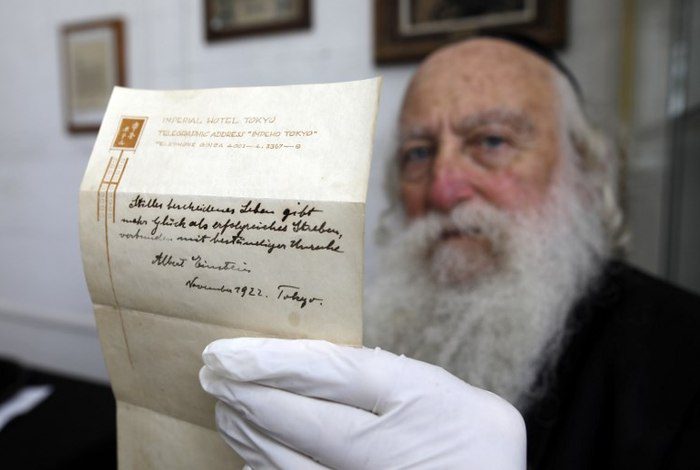 IMPERIAL HOTEL TOKYO
TELEGRAPHIC ADDRESS "IMPEHO TOKYO"
TELEPHONE GINZA
Stilles bescheidenes Leben gibt
mehr Glück als erfolgreiches Streben,
verbunden mit beständiger Unruhe
Albert Einstein
November 1922. Tokyo.